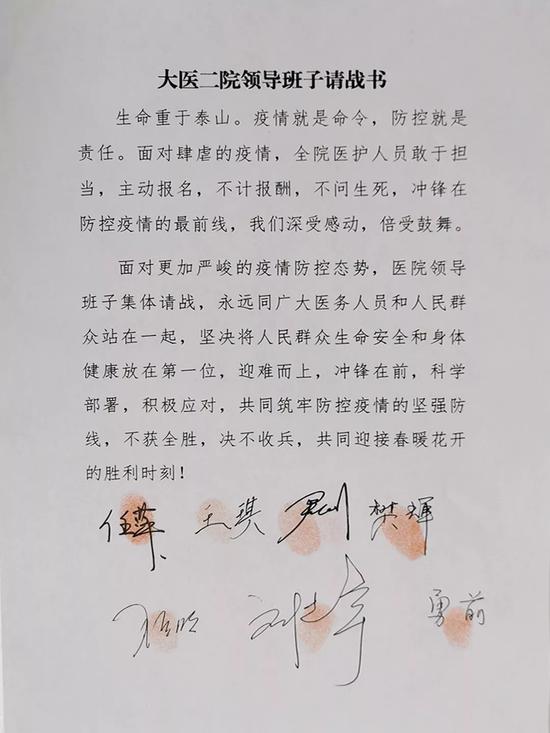 大医二院领导班子请战书
生命重于泰山。疫情就是命令，防控就是
责任。面对肆虐的疫情，全院医护人员敢于担
当，主动报名，不计报酬，不问生死，冲锋在
防控疫情的最前线，我们深受感动，倍受鼓舞。
面对更加严峻的疫情防控态势，医院领导
班子集体请战，永远同广大医务人员和人民群
众站在一起，坚决将人民群众生命安全和身体
健康放在第一位，迎难而上，冲锋在前，科学
部署，积极应对，共同筑牢防控疫情的坚强防
线，不获全胜，决不收兵，共同迎接春暖花开
的胜利时刻！
任萍 王琪 樊辉
勇前